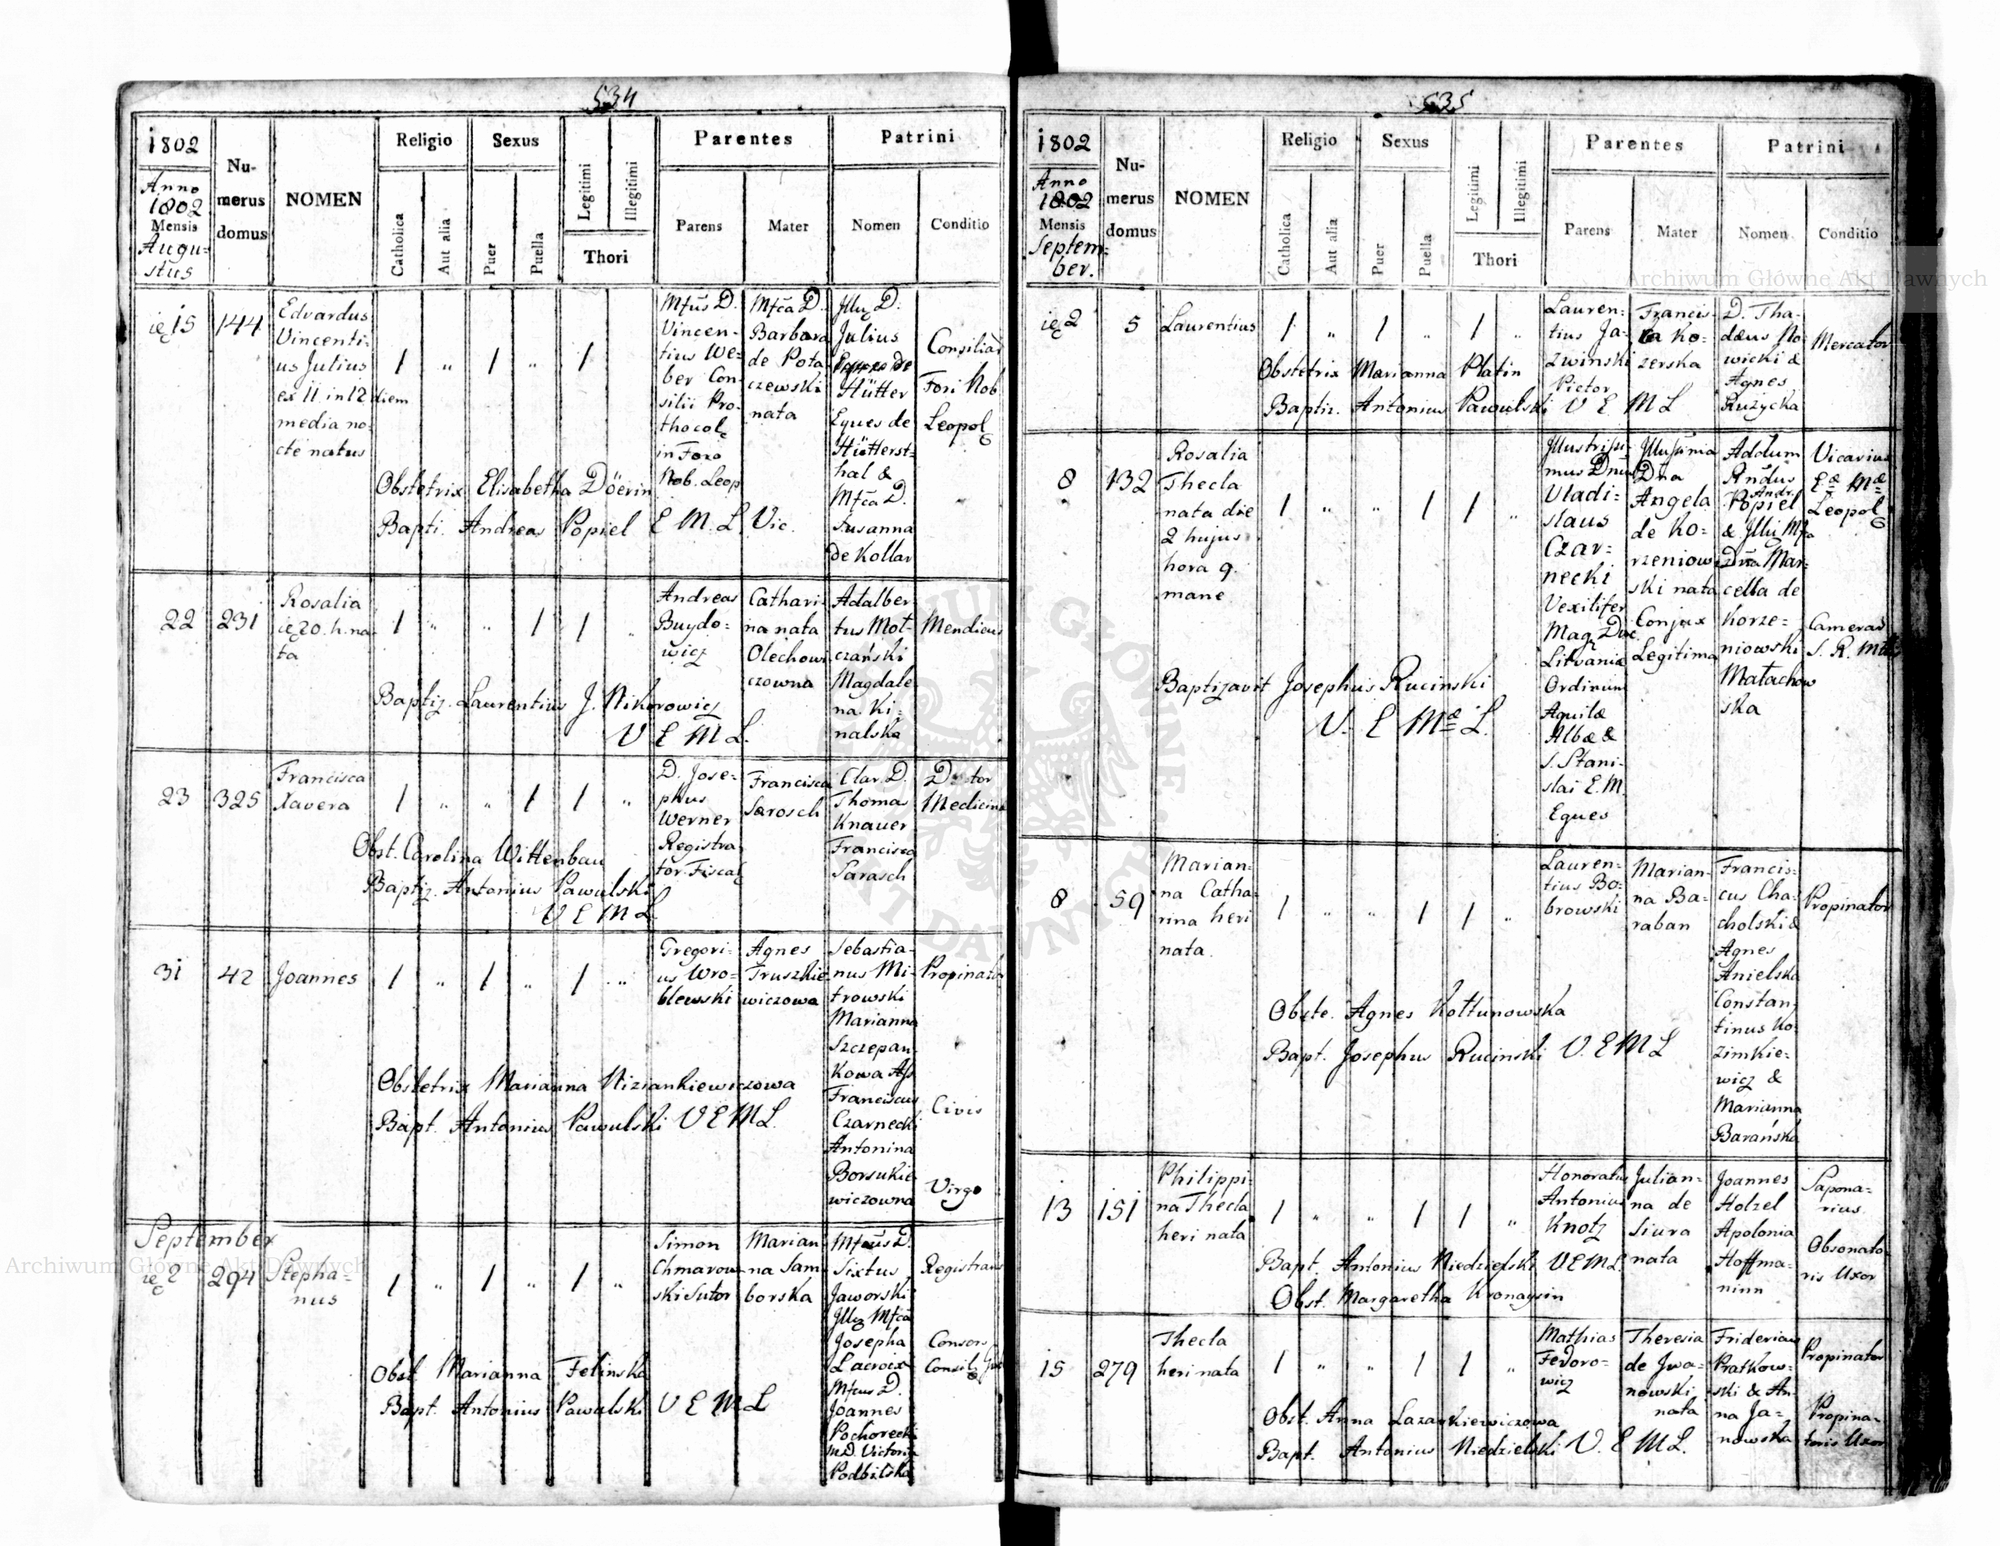 534
1802
Anno
1802
Mensis
Augu-
stus
Nu-
merus
domus
NOMEN
Religio
Catholica
Aut alia
Sexus
Puer
Puella
Legitimi
Illegitimi
Thori
Parentes
Parens
Mater
Patrini
Nomen
Conditio
15
144
Edvardus
Vincenti-
us Julius
ex 11 in 12 diem
media no-
cte natus
Vincen-
tius We-
ber Con-
silii Pro-
thocol
in Foro
Nob. Leop
Barbara
de Pota
czewski
nata
Julius
Hütter
Eques de
Hütterst-
hal &
Susanna
de Kollar
Consiliar
Fori Nob
Leopol
Obstetrix Elisabetha Döerin
Bapti. Andreas Popiel E M. L. Vic.
22
231
Rosalia
20. h. na-
ta
Andreas
Buydo-
wicz
Cathari-
na nata
Olechowi
czowna
Adalber
tus Mot-
czański
Magdale
na Ki-
nalska
Mendicus
Baptiz. Laurentius J. Nikorowicz
V E M L.
23
325
Francisca
Xavera
D. Jose-
phus
Werner
Registra
tor Fiscal
Francisca
Sarosch
Clar. D.
Thomas
Knauer
Francisca
Sarasch
Doctor
Medicina
Obst. Carolina Wittenbau
Baptiz. Antonius Pawulski
V E M L
31
42
Joannes
Gregori-
us Wro-
blewski
Agnes
Truszkie
wiczowa
Sebastia-
nus Mi-
trowski
Marianna
Szczepan-
kowa Ass
Franciscus
Czarnecki
Antonina
Borsukie
wiczowna
Propinator
Civis
Virgo
Obstetrix Marianna Niziankiewiczowa
Bapt. Antonius Pawulski V E M L.
September
2
294
Stepha-
nus
Simon
Chmarow
ski Sutor
Marian
na Sam
borska
Sixtus
Jaworski
Josepha
Lacroix
Joannes
Pochorecki
Victoria
Podbilska
Registrans
Consors
Consil.
Obst. Marianna Felinska
Bapt. Antonius Pawulski V E M L
535
1802
Anno
1802
Mensis
Septem-
ber.
Nu-
merus
domus
NOMEN
Religio
Catholica
Aut alia
Sexus
Puer
Puella
Legitimi
Illegitimi
Thori
Parentes
Parens
Mater
Patrini
Nomen
Conditio
2
5
Laurentius
Lauren-
tius Ja-
zwinski
Pictor
Francis-
ca Ko-
zerska
D. Tha-
daeus No-
wicki &
Agnes
Ružycka
Mercator
Obstetrix Marianna Platin
Baptiz. Antonius Pawulski V E M L
8
132
Rosalia
Thecla
nata die
2 hujus
hora 9.
mane
Illustrissi-
mus Dnus
Vladi-
slaus
Czar-
necki
Vexilifer
Mag. Duc
Litvaniæ
Ordinum
Aquilæ
Albæ &
S. Stani-
slai E. M.
Eques
Dna
Angela
de Ko-
rzeniow
ski nata
Conjux
Legitima
Addum
Rndus
Andr.
Popiel
Dna Mar-
cella de
Korze-
niowski
Małachow
ska
Vicarius
Leopol
Camerar
Baptizavit Josephus Rucinski
V. E Mæ L.
8
59
Marian-
na Catha-
rina heri
nata.
Lauren-
tius Bo-
browski
Marian-
na Ba-
raban
Francis-
cus Cha-
cholski &
Agnes
Anielska
Constan-
tinus Ko
zimkie-
wicz &
Marianna
Barańska
Propinator
Obste. Agnes Kołtunowska
Bapt. Josephus Rucinski V. E M L
13
151
Philippi-
na Thecla
heri nata
Honoratus
Antonius
Knotz
Julian-
na de
Siura
nata
Joannes
Holzel
Apolonia
Hoffma-
ninn
Sapona-
rius.
Obsonato-
ris Uxor
Bapt. Antonius Niedzielski V E M L
Obst. Margaretha Kronaysin
15
279
Thecla
heri nata
Mathias
Fedoro-
wicz
Theresia
de Jwa-
nowski
nata
Fridericus
Pratkow-
ski & An-
na Ja-
nowska
Propinator
Propina-
toris Uxor
Obst. Anna Lazarkiewiczowa
Bapt. Antonius Niedzielski V. E M L.
Archiwum Główne Akt Dawnych
Archiwum Główne Akt Dawnych